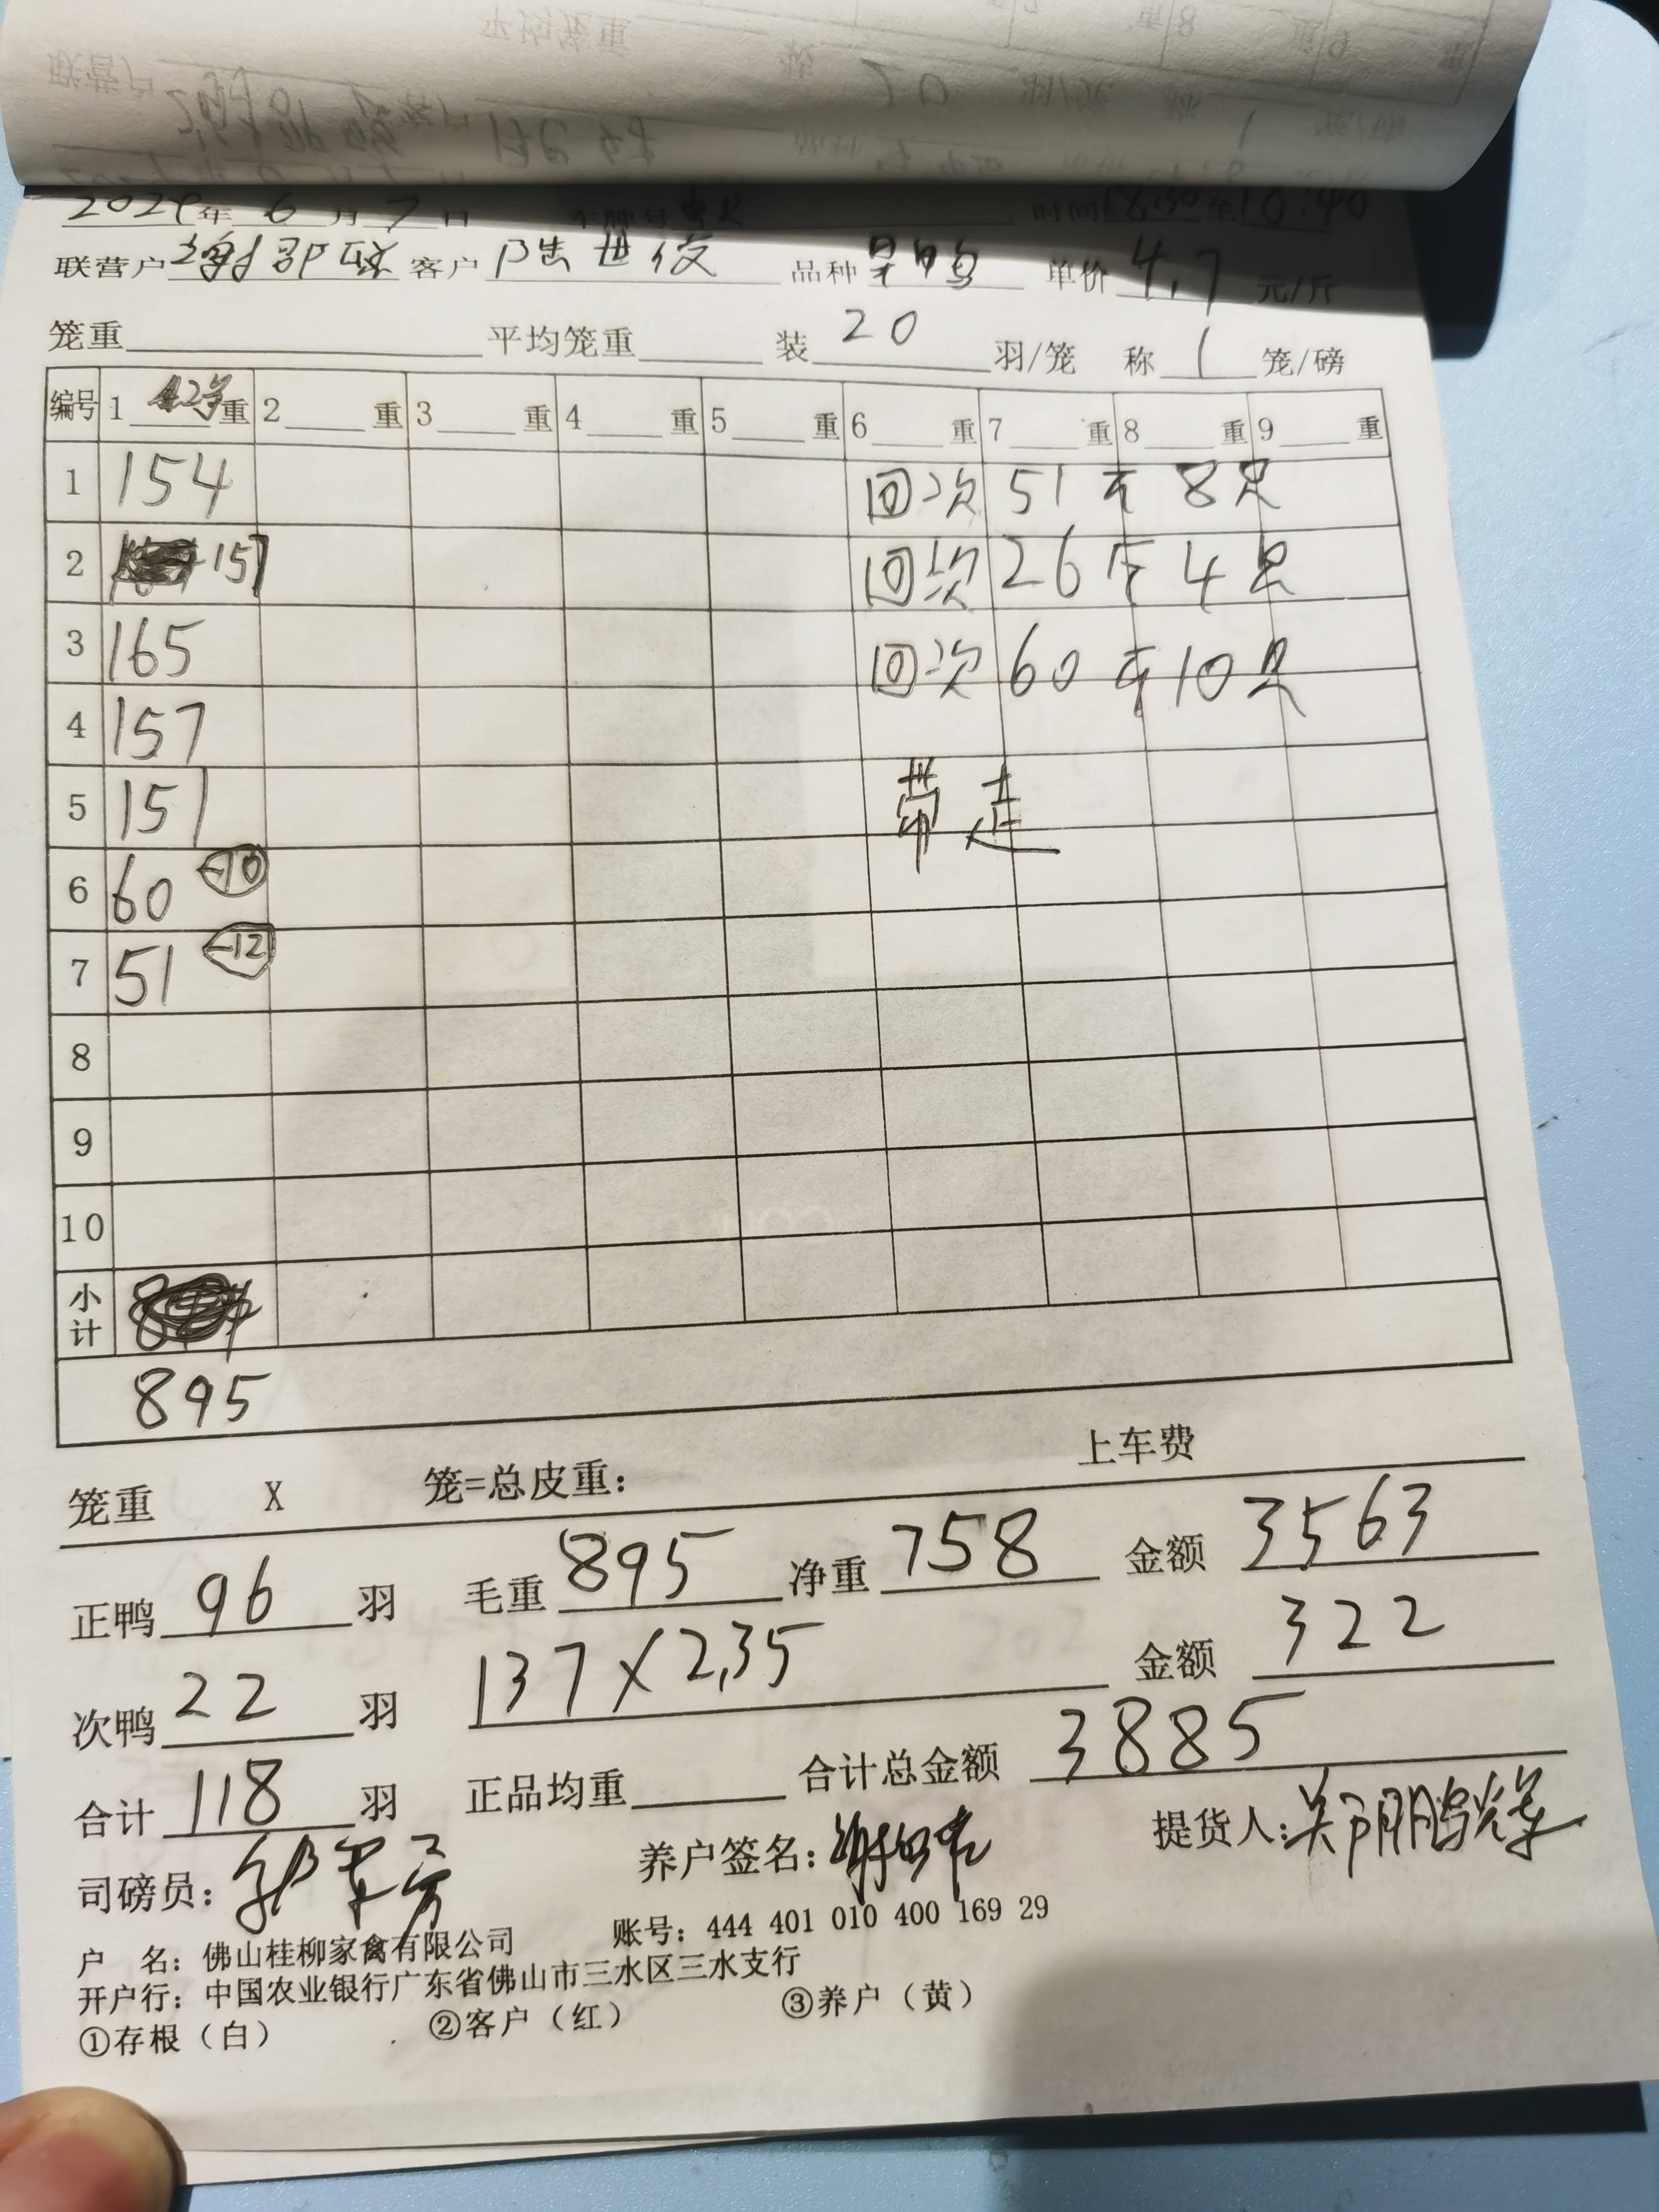 2024年 6 月 7 日 车牌号 时间 18:30 至 18:40
联营户 客户 陆世俊 品种 单价 4.7 元/斤
笼重 平均笼重 装 20 羽/笼 称 1 笼/磅
编号 1 重 2 重 3 重 4 重 5 重 6 重 7 重 8 重 9 重
1 154 回次 51斤 8只
2 157 回次 26斤 4只
3 165 回次 60斤 10只
4 157
5 151 带走
6 60 -10
7 51 -12
8
9
10
小计
895
笼重 X 笼=总皮重: 上车费
正鸭 96 羽 毛重 895 净重 758 金额 3563
次鸭 22 羽 137×2.35 金额 322
合计 118 羽 正品均重 合计总金额 3885
司磅员: 养户签名: 提货人: 郑鹏辉
户 名: 佛山桂柳家禽有限公司 账号: 444 401 010 400 169 29
开户行: 中国农业银行广东省佛山市三水区三水支行
①存根(白) ②客户(红) ③养户(黄)